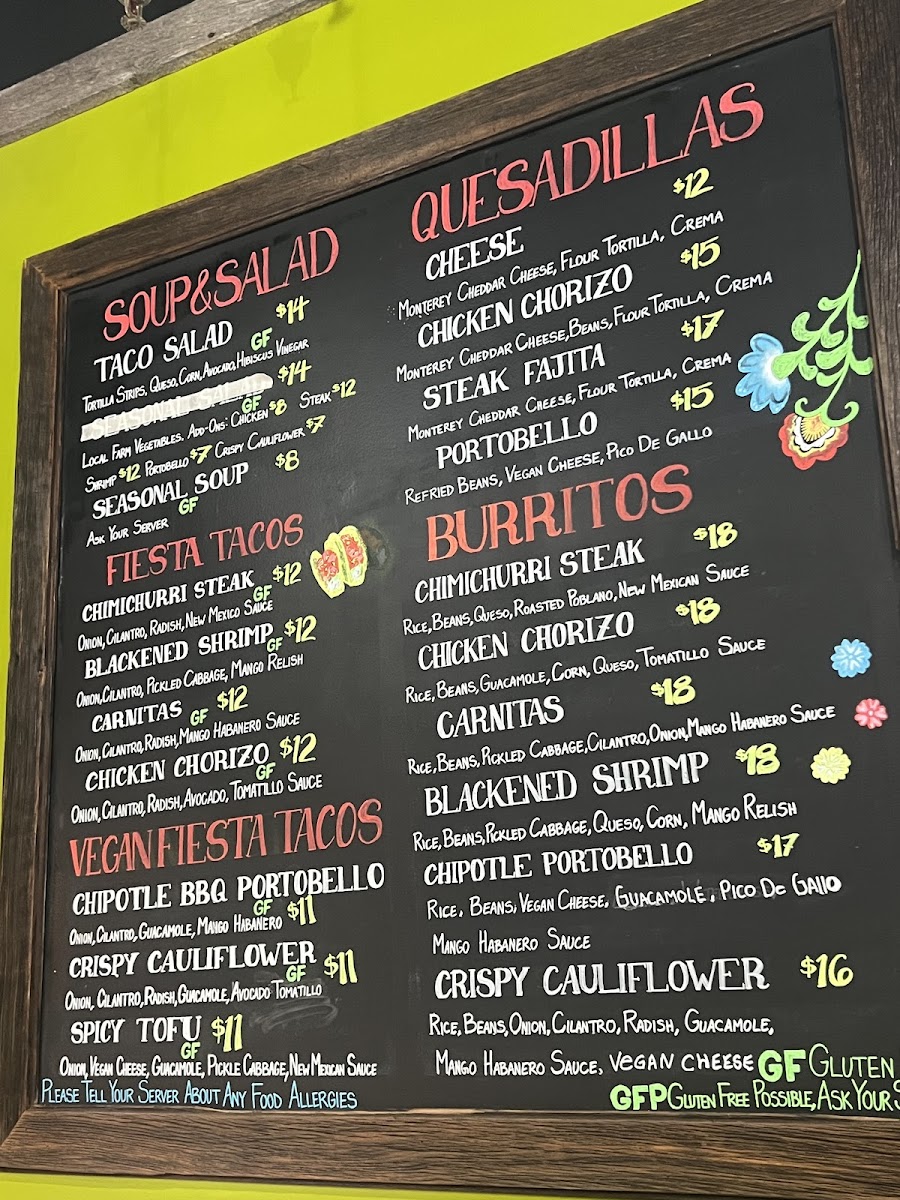 SOUP&SALAD
TACO SALAD $14
GF
TORTILLA STRIPS, QUESO, CORN, AVOCADO, HIBISCUS VINEGAR
SEASONAL SALAD $14
GF
LOCAL FARM VEGETABLES. ADD-ONS: CHICKEN $8 STEAK $12
SHRIMP $12 PORTOBELLO $7 CRISPY CAULIFLOWER $7
SEASONAL SOUP $8
ASK YOUR SERVER GF
FIESTA TACOS
CHIMICHURRI STEAK $12
GF
ONION, CILANTRO, RADISH, NEW MEXICO SAUCE
BLACKENED SHRIMP $12
GF
ONION, CILANTRO, PICKLED CABBAGE, MANGO RELISH
CARNITAS GF $12
ONION, CILANTRO, RADISH, MANGO HABANERO SAUCE
CHICKEN CHORIZO $12
GF
ONION, CILANTRO, RADISH, AVOCADO, TOMATILLO SAUCE
VEGAN FIESTA TACOS
CHIPOTLE BBQ PORTOBELLO
GF
ONION, CILANTRO, GUACAMOLE, MANGO HABANERO $11
CRISPY CAULIFLOWER $11
GF
ONION, CILANTRO, RADISH, GUACAMOLE, AVOCADO TOMATILLO
SPICY TOFU $11
GF
ONION, VEGAN CHEESE, GUACAMOLE, PICKLE CABBAGE, NEW MEXICAN SAUCE
PLEASE TELL YOUR SERVER ABOUT ANY FOOD ALLERGIES
QUESADILLAS
CHEESE $12
MONTEREY CHEDDAR CHEESE, FLOUR TORTILLA, CREMA
CHICKEN CHORIZO $15
MONTEREY CHEDDAR CHEESE, BEANS, FLOUR TORTILLA, CREMA
STEAK FAJITA $17
MONTEREY CHEDDAR CHEESE, FLOUR TORTILLA, CREMA
PORTOBELLO $15
REFRIED BEANS, VEGAN CHEESE, PICO DE GALLO
BURRITOS
CHIMICHURRI STEAK $18
RICE, BEANS, QUESO, ROASTED POBLANO, NEW MEXICAN SAUCE
CHICKEN CHORIZO $18
RICE, BEANS, GUACAMOLE, CORN, QUESO, TOMATILLO SAUCE
CARNITAS $18
RICE, BEANS, PICKLED CABBAGE, CILANTRO, ONION, MANGO HABANERO SAUCE
BLACKENED SHRIMP $18
RICE, BEANS, PICKLED CABBAGE, QUESO, CORN, MANGO RELISH
CHIPOTLE PORTOBELLO $17
RICE, BEANS, VEGAN CHEESE, GUACAMOLE, PICO De GAllO
MANGO HABANERO SAUCE
CRISPY CAULIFLOWER $16
RICE, BEANS, ONION, CILANTRO, RADISH, GUACAMOLE,
MANGO HABANERO SAUCE, VEGAN CHEESE
GF GLUTEN
GFP GLUTEN FREE POSSIBLE, ASK YOUR S